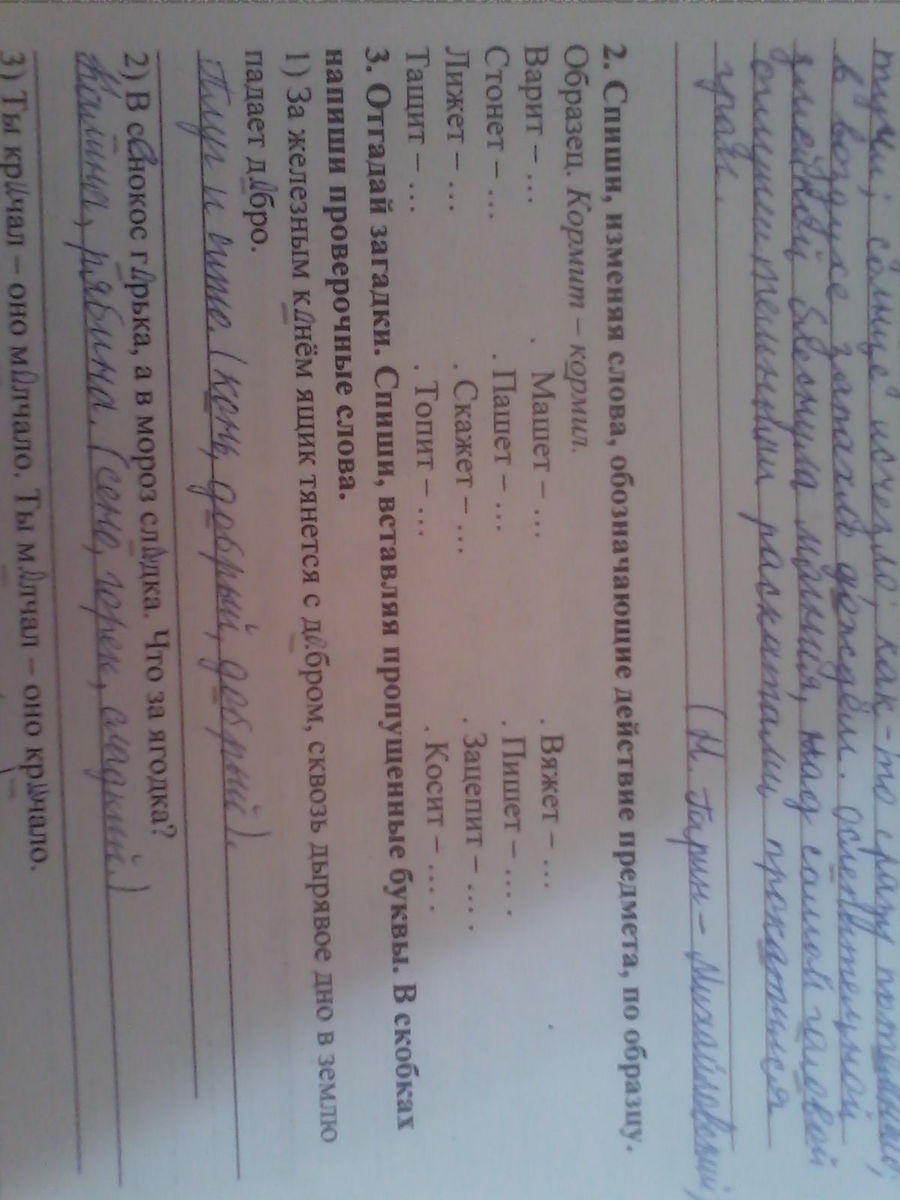 тучи; солнце исчезло; как-то сразу потемнело,
в воздухе запахло дождём. Ослепительной
змейкой блеснула молния, над самой головой
оглушительными раскатами прокатился
гром.
(Н. Гарин-Михайловский)
2. Спиши, изменяя слова, обозначающие действие предмета, по образцу.
Образец. Кормит – кормил.
Варит – ... Машет – ... Вяжет – ...
Стонет – ... Пашет – ... Пишет – ....
Лижет – ... Скажет – ... Зацепит – ....
Тащит – ... Топит – ... Косит – ....
3. Отгадай загадки. Спиши, вставляя пропущенные буквы. В скобках
напиши проверочные слова.
1) За железным конём ящик тянется с добром, сквозь дырявое дно в землю
падает добро.
Плуг и (конь, добрый, добрый).
2) В сенокос горька, а в мороз сладка. Что за ягодка?
Калина, рябина. (сено, горек, сладкий.)
3) Ты кричал – оно молчало. Ты молчал – оно кричало.